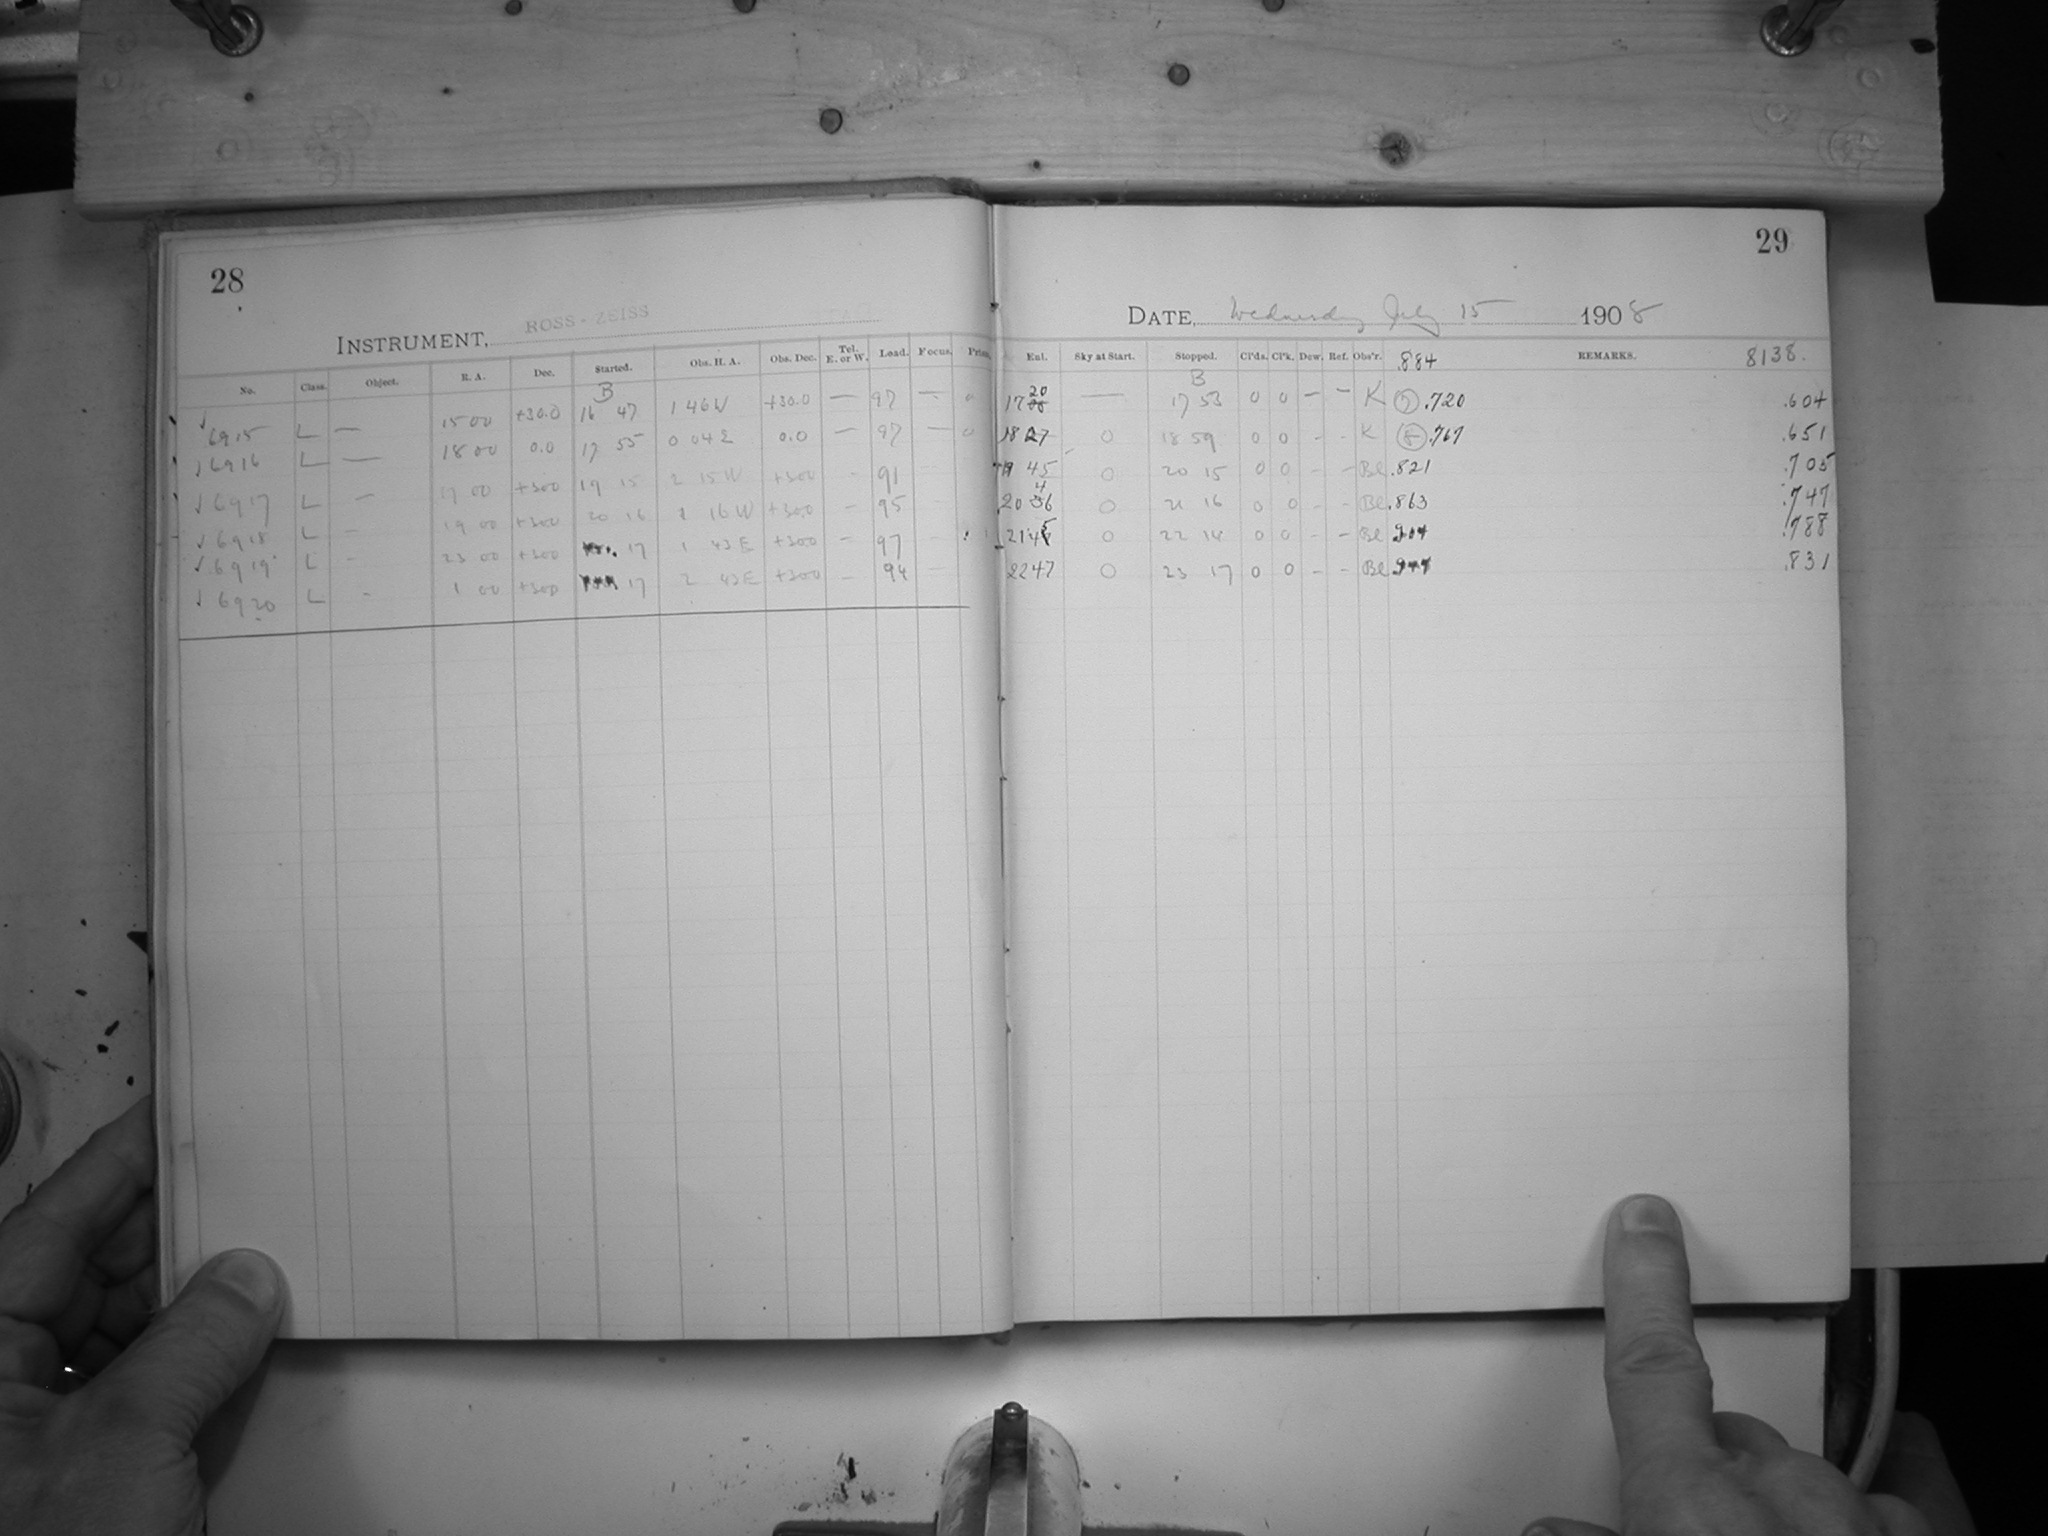 28
INSTRUMENT, ROSS-ZEISS
No. Class. Object. R. A. Dec. Started. Obs. H. A. Obs. Dec. Tel. E. or W. Load. Focus.
B
6915 L — 15 00 +30.0 16 47 1 46 W +30.0 — 97 —
6916 L — 18 00 0.0 17 55 0 04 E 0.0 — 97 —
6917 L — 17 00 +30.0 19 15 2 15 W +30.0 - 91
6918 L - 19 00 +30.0 20 16 1 16 W +30.0 - 95
6919 L - 23 00 +30.0 17 1 43 E +30.0 - 97
6920 L - 1 00 +30.0 17 2 43 E +30.0 - 94
29
DATE, Wednesday July 15 1908
Enl. Sky at Start. Stopped. Cl'ds. Cl'k. Dew. Ref. Obs'r. .884 REMARKS. 8138.
B
17 20 — 17 53 0 0 - - K 7 .720 .604
18 27 0 18 59 0 0 - - K 8 .767 .651
19 45 0 20 15 0 0 - - Bl .821 .705
20 46 0 21 16 0 0 - - Bl .863 .747
21 45 0 22 14 0 0 - - Bl .788
22 47 0 23 17 0 0 - - Bl .831